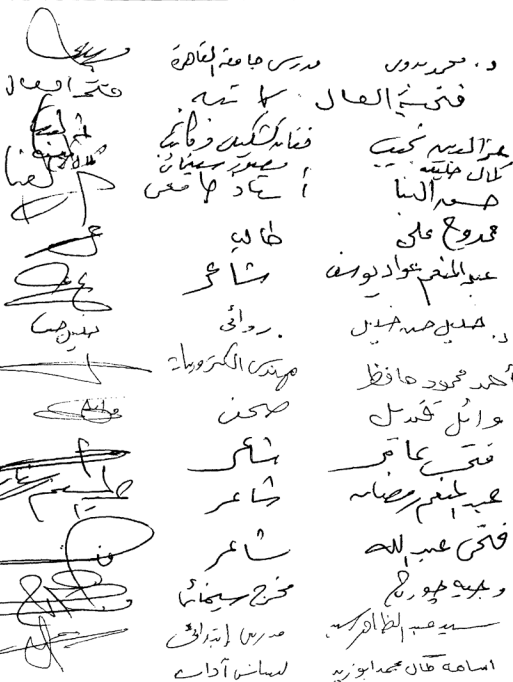 د. محمد بدوى مدرس جامعة القاهرة
فتحية العسال كاتبة فتحية العسال
عز الدين نجيب فنان تشكيلى وكاتب
كمال خليفة مصور سينمائى
حسن البنا أستاذ جامعى
ممدوح على طالب
عبد المنعم عواد يوسف شاعر
د. خليل حسن خليل روائى خليل حسن
أحمد محمود حافظ مهندس الكترونيات
وائل قنديل صحفى وائل
فتحى عامر شاعر
عبد المنعم رمضان شاعر
فتحى عبد الله شاعر
وجيه جورج مخرج سينمائى
سيد عبد الظاهر مدرس إبتدائى
اسامه كمال محمد ابوزيد ليسانس آداب